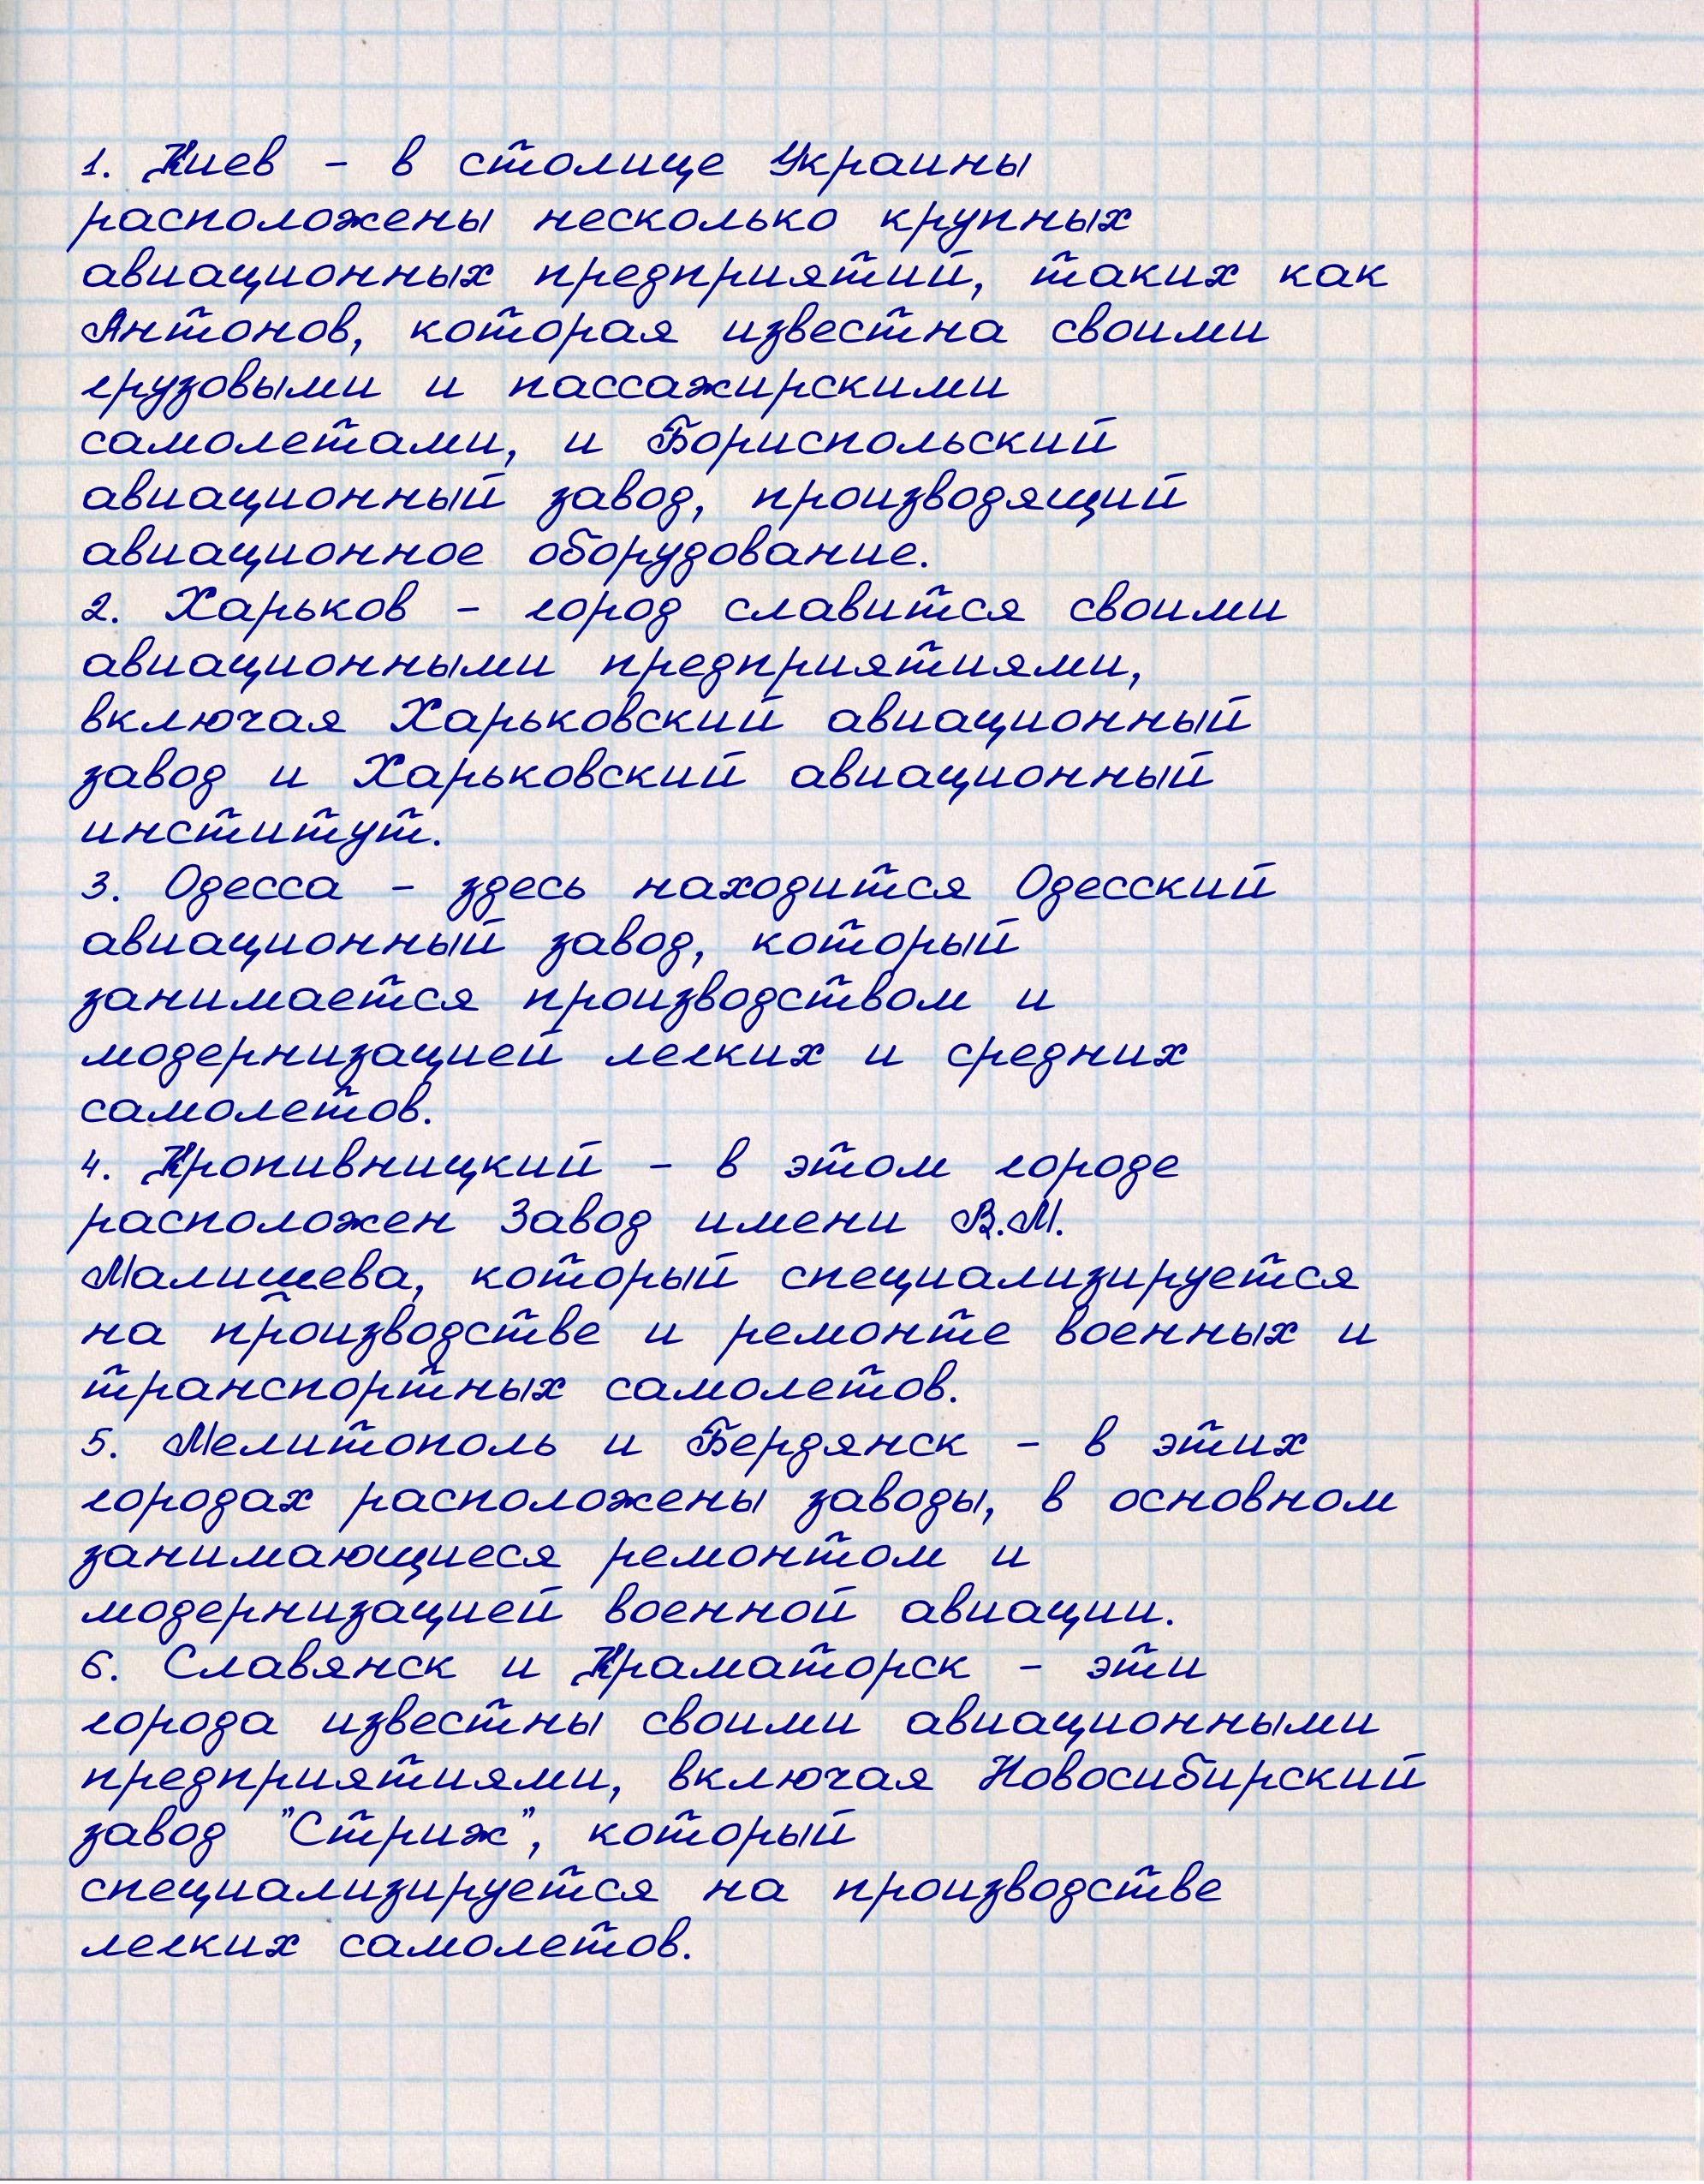 1. Киев - в столице Украины
расположены несколько крупных
авиационных предприятий, таких как
Антонов, которая известна своими
грузовыми и пассажирскими
самолетами, и Бориспольский
авиационный завод, производящий
авиационное оборудование.
2. Харьков - город славится своими
авиационными предприятиями,
включая Харьковский авиационный
завод и Харьковский авиационный
институт.
3. Одесса - здесь находится Одесский
авиационный завод, который
занимается производством и
модернизацией легких и средних
самолетов.
4. Кропивницкий - в этом городе
расположен Завод имени В.М.
Малишева, который специализируется
на производстве и ремонте военных и
транспортных самолетов.
5. Мелитополь и Бердянск - в этих
городах расположены заводы, в основном
занимающиеся ремонтом и
модернизацией военной авиации.
6. Славянск и Краматорск - эти
города известны своими авиационными
предприятиями, включая Новосибирский
завод "Стриж", который
специализируется на производстве
легких самолетов.